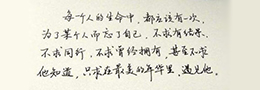 每个人的生命中，都应该有一次，
为了某个人而忘了自己，不求有结果，
不求同行，不求曾经拥有，甚至不求
他知道，只求在最美的年华里，遇见他。